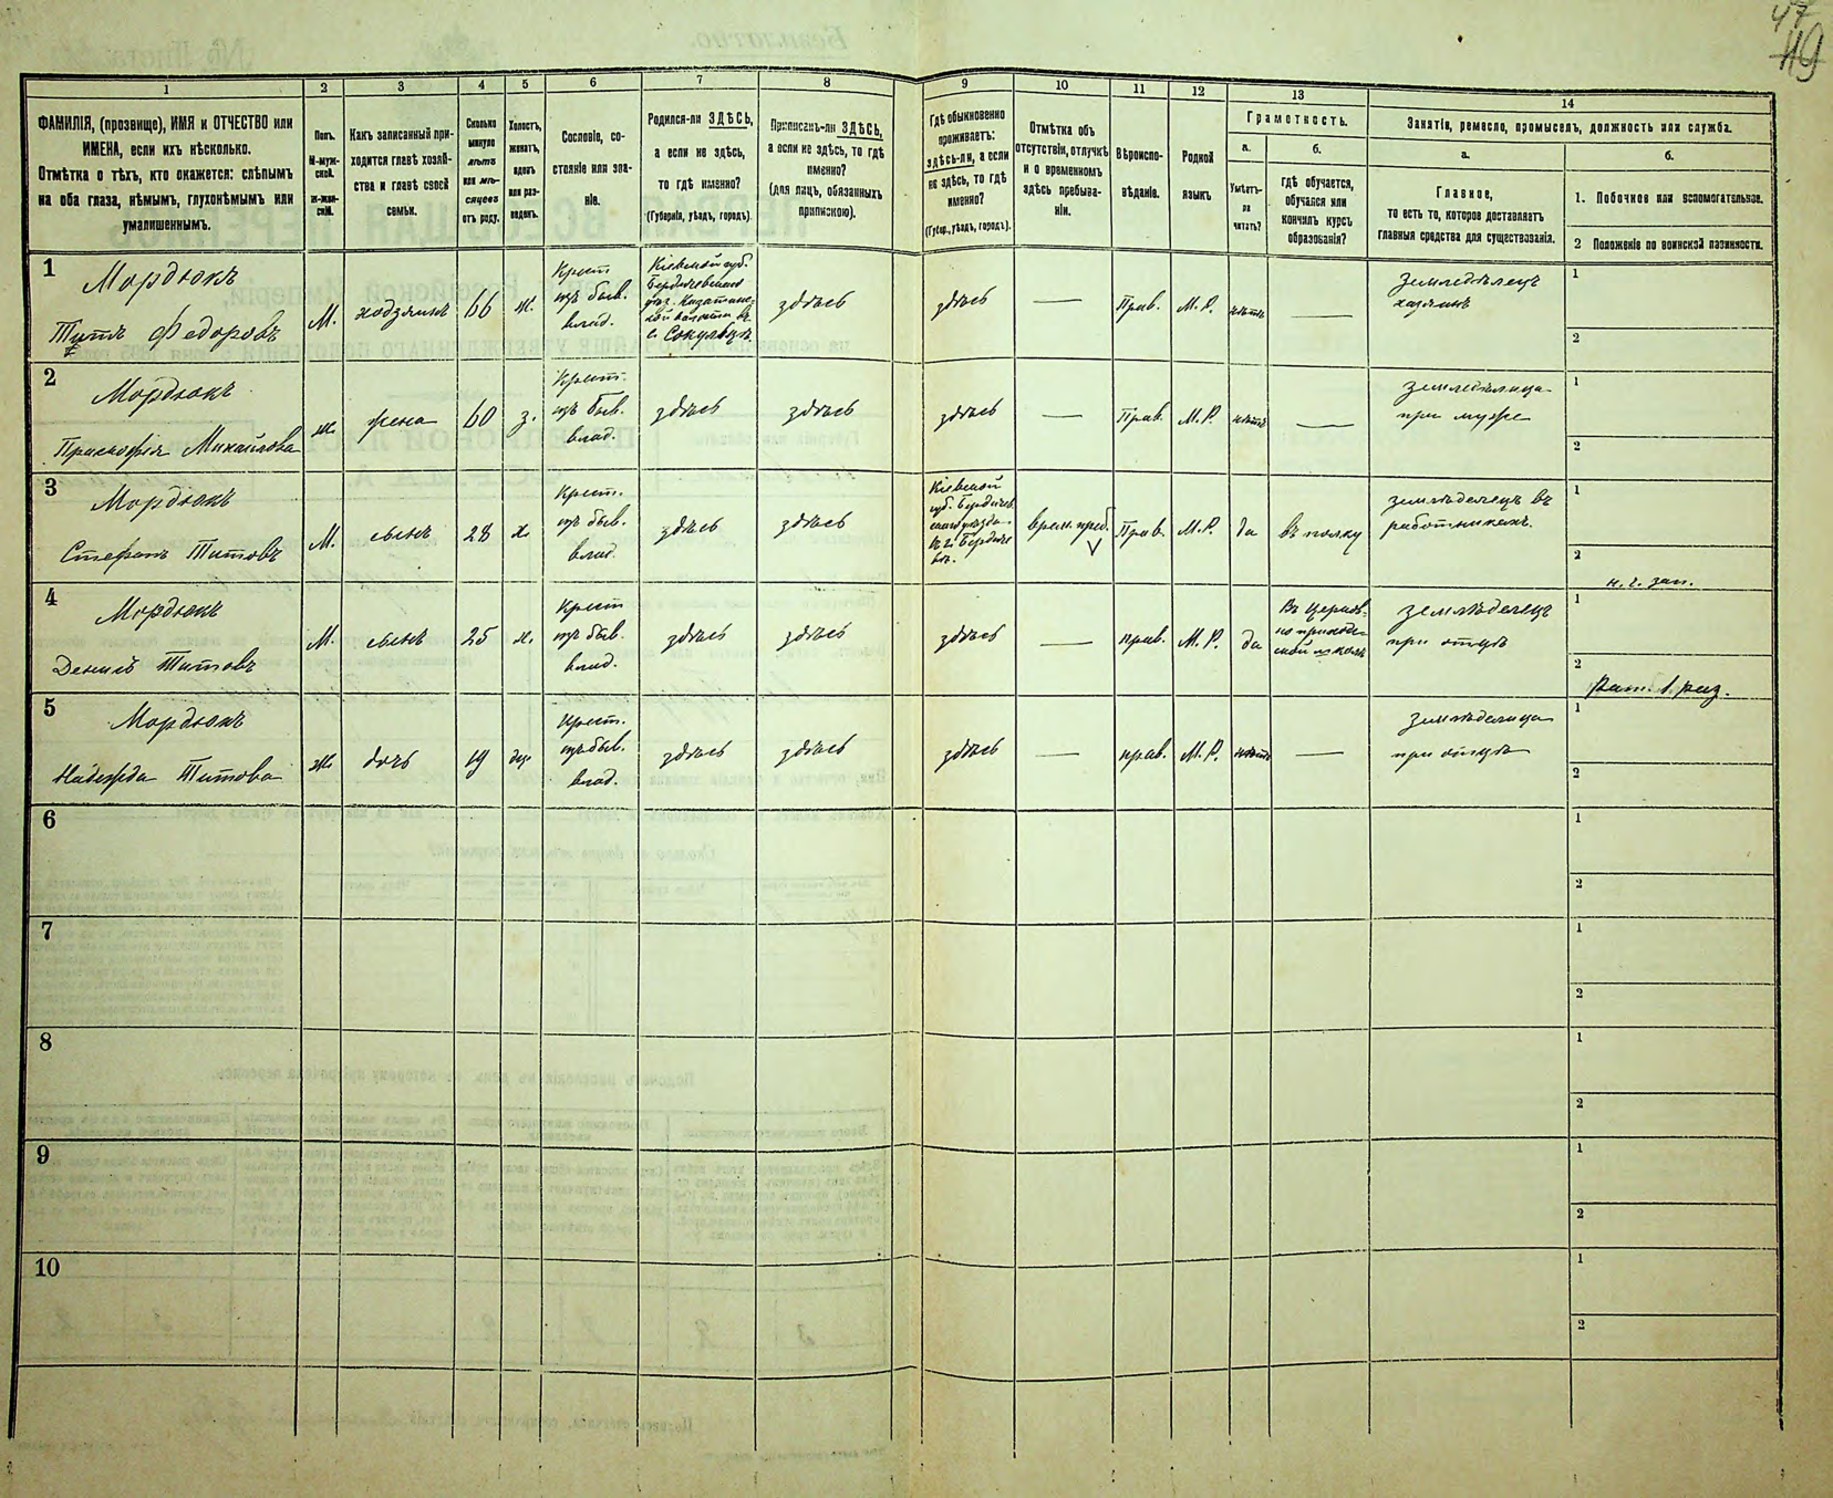 47
119
1
2
3
4
5
6
7
8
9
10
11
12
13
14
ФАМИЛІЯ, (прозвище), ИМЯ и ОТЧЕСТВО или
ИМЕНА, если ихъ нѣсколько.
Отмѣтка о тѣхъ, кто окажется: слѣпымъ
на оба глаза, нѣмымъ, глухонѣмымъ или
умалишеннымъ.
Полъ.
М-муж-
ской.
Ж-жен-
скій.
Какъ записанный при-
ходится главѣ хозяй-
ства и главѣ своей
семьи.
Сколько
минуло
лѣтъ
или мѣ-
сяцевъ
отъ роду.
Холостъ,
женатъ,
вдовъ
или раз-
веденъ.
Сословіе, со-
стояніе или зва-
ніе.
Родился-ли ЗДѢСЬ,
а если не здѣсь,
то гдѣ именно?
(Губернія, уѣздъ, городъ).
Приписанъ-ли ЗДѢСЬ,
а если не здѣсь, то гдѣ
именно?
(для лицъ, обязанныхъ
припискою).
Гдѣ обыкновенно
проживаетъ:
здѣсь-ли, а если
не здѣсь, то гдѣ
именно?
(Губер., уѣздъ, городъ).
Отмѣтка объ
отсутствіи, отлучкѣ
и о временномъ
здѣсь пребыва-
ніи.
Вѣроиспо-
вѣданіе.
Родной
языкъ.
Грамотность.
а.
Умѣетъ-
ли
читать?
б.
гдѣ обучается,
обучался или
кончилъ курсъ
образованія?
Занятіе, ремесло, промыселъ, должность или служба.
а.
Главное,
то есть то, которое доставляетъ
главныя средства для существованія.
б.
1. Побочное или вспомогательное.
2 Положеніе по воинской повинности.
1
Мордюкъ
Титъ Федоровъ
М.
ходзяинъ
66
ж.
Крест
изъ быв.
влад.
Кіевской губ.
Бердичевскаго
уѣз. Казатинс-
кой волости въ
с. Сокульцѣ.
здѣсь
здѣсь
—
Прав.
М.Р.
нѣтъ
—
Земледѣлецъ
хазяинъ
1
2
2
Мордюкъ
Михайлова
ж.
жена
60
з.
Крест.
изъ быв.
влад.
здѣсь
здѣсь
здѣсь
—
Прав.
М.Р.
нѣтъ
—
Земледѣлица
при мужѣ
1
2
3
Мордюкъ
Стефанъ Титовъ
М.
сынъ
28
х.
Крест.
изъ быв.
влад.
здѣсь
здѣсь
Кіевской
губ. Бердичев
скаго уѣзда
въ г. Бердиче
вѣ.
врем. преб.
V
Прав.
М.Р.
да
въ полку
земледелецъ въ
работникахъ.
1
2
н. г. зап.
4
Мордюкъ
Титовъ
М.
сынъ
25
х.
Крест
изъ быв.
влад.
здѣсь
здѣсь
здѣсь
—
прав.
М.Р.
да
Въ церков-
но приходс-
кой школѣ
земледелецъ
при отцѣ
1
2
Рат. 1 раз.
5
Мордюкъ
Надежда Титова
Ж.
дочь
19
дѣ.
Крест.
изъ быв.
влад.
здѣсь
здѣсь
здѣсь
—
прав.
М.Р.
нѣтъ
—
Земледелица
при отцѣ
1
2
6
1
2
7
1
2
8
1
2
9
1
2
10
1
2